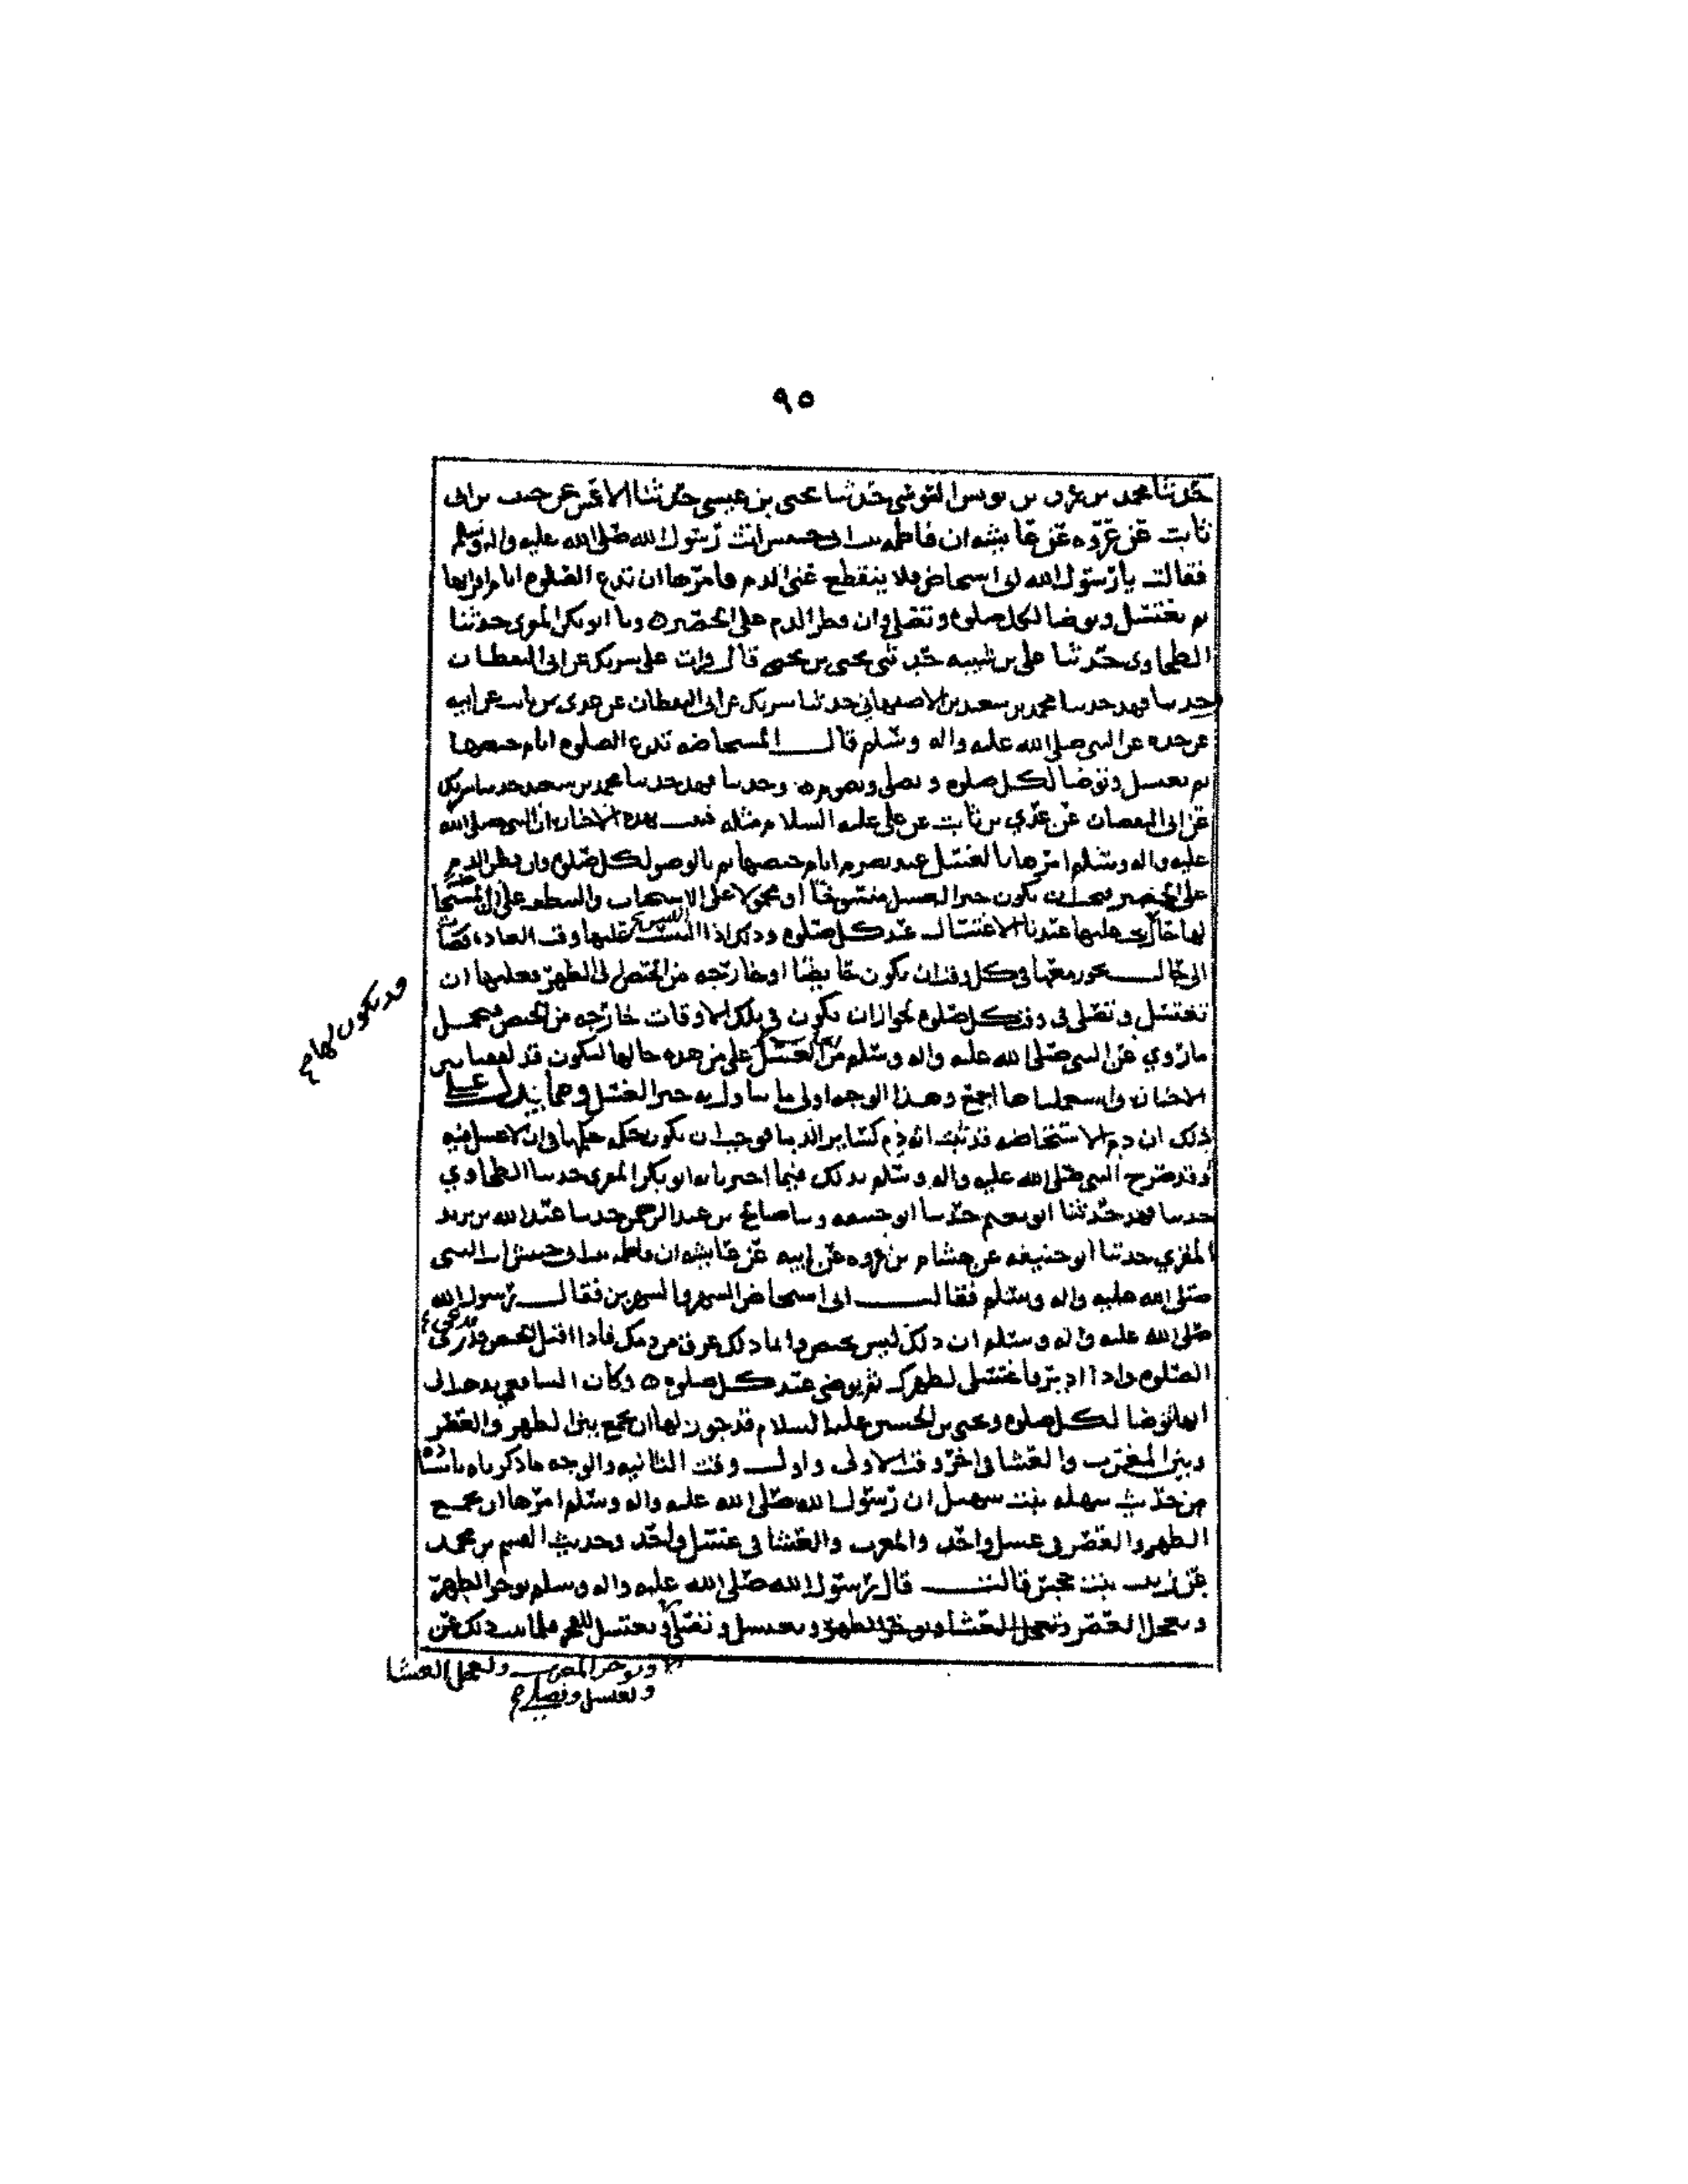 ٩٥
حدثنا محمد بن عمرو بن يونس التغلبي حدثنا يحيى بن عيسى حدثنا الاعمش عن حبيب بن ابي
ثابت عن عروه عن عايشه ان فاطمه بنت ابي حبيش اتت رسول الله صلى الله عليه واله وسلم
فقالت يا رسول الله اني استحاض فلا ينقطع عني الدم فامرها ان تدع الصلوه ايام اقرايها
ثم تغتسل وتوضا لكل صلوه وتصلي وان قطر الدم على الحصير ٥ وبا ابو بكر المقري حدثنا
الطحاوي حدثنا علي بن شيبه حدثني يحيى بن يحيى قال قرات على شريك عن ابي اليقظان
حدثنا فهد حدثنا محمد بن سعيد بن الاصبهاني حدثنا شريك عن ابي اليقظان عن عدي بن ثابت عن ابيه
عن جده عن النبي صلى الله عليه واله وسلم قال المستحاضه تدع الصلوه ايام حيضها
ثم تغتسل وتوضا لكل صلوه وتصلي وتصوم ٥ وحدثنا فهد حدثنا محمد بن سعيد حدثنا شريك
عن ابي اليقظان عن عدي بن ثابت عن علي عليه السلام مثله فثبت بهذه الاخبار ان النبي صلى الله
عليه واله وسلم امرها بالغسل عند تصرم ايام حيضها ثم بالوضو لكل صلوه وان قطر الدم
على الحصير فيجب ان يكون خبر الغسل منسوخا او محمولا على الاستحباب والنظر على ان المستحاضه
لها حال يجب عليها عندنا الاغتسال عند كل صلوه وذلك اذا التبس عليها وقت العاده فصارت
الى حال يجوز معها في كل وقت ان يكون حايضا او خارجه من الحيض الى الطهر فعليها ان
تغتسل وتصلي في وقت كل صلوه لجواز ان يكون في تلك الاوقات خارجه من الحيض فيحمل
ما روي عن النبي صلى الله عليه واله وسلم من الغسل على من هذه حالها لنكون قد لفقنا بين
الاخبار واستعملناها اجمع وهذا الوجه اولى ما يتاول به خبر الغسل ومما يدل على
ذلك ان دم الاستحاضه قد ثبت انه دم كساير الدما فوجب ان يكون حكمه حكمها في ان لا غسل فيه
وقد صرح النبي صلى الله عليه واله وسلم بذلك فيما اخبرنا به ابو بكر المقري حدثنا الطحاوي
حدثنا فهد حدثنا ابو نعيم حدثنا ابو حنيفه وبا صالح بن عبد الرحمن حدثنا عبد الله بن يزيد
المقري حدثنا ابو حنيفه عن هشام بن عروه عن ابيه عن عايشه ان فاطمه بنت ابي حبيش اتت النبي
صلى الله عليه واله وسلم فقالت اني استحاض الشهر والشهرين فقال رسول الله
صلى الله عليه واله وسلم ان ذلك ليس بحيض وانما ذلك عرق من دمك فاذا اقبل الحيض فذري
الصلوه واذا ادبر فاغتسلي لطهرك ثم توضي عند كل صلوه ٥ وكان الشافعي يذهب الى
انها توضا لكل صلوه ويحيى بن الحسين عليه السلام قد جوز لها ان تجمع بين الظهر والعصر
وبين المغرب والعشا في اخر وقت الاولى واول وقت الثانيه والوجه ما ذكرناه باسناده
من حديث سهله بنت سهيل ان رسول الله صلى الله عليه واله وسلم امرها ان تجمع
الظهر والعصر في غسل واحد والمغرب والعشا في غسل واحد وحديث القسم بن محمد
عن زينب بنت جحش قالت قال رسول الله صلى الله عليه واله وسلم توخر الظهر
وتعجل العصر وتغتسل وتصلي وتغتسل للفجر فلما ثبت ذلك عن
قد تكون لها
وتوخر المغرب وتعجل العشا
وتغتسل وتصلي